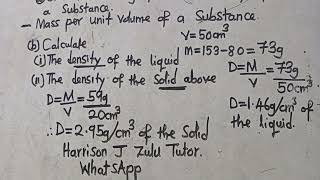 a Substance.
- Mass per unit volume of a Substance.
(b) Calculate
(i) The density of the liquid
(ii) The density of the Solid above
V=50cm³
m=153-80=73g
D=M/V=73g/50cm³
D=1.46g/cm³ of
the liquid.
D=M/V=59g/20cm³
∴D=2.95g/cm³ of the Solid
Harrison J Zulu Tutor.
WhatsApp